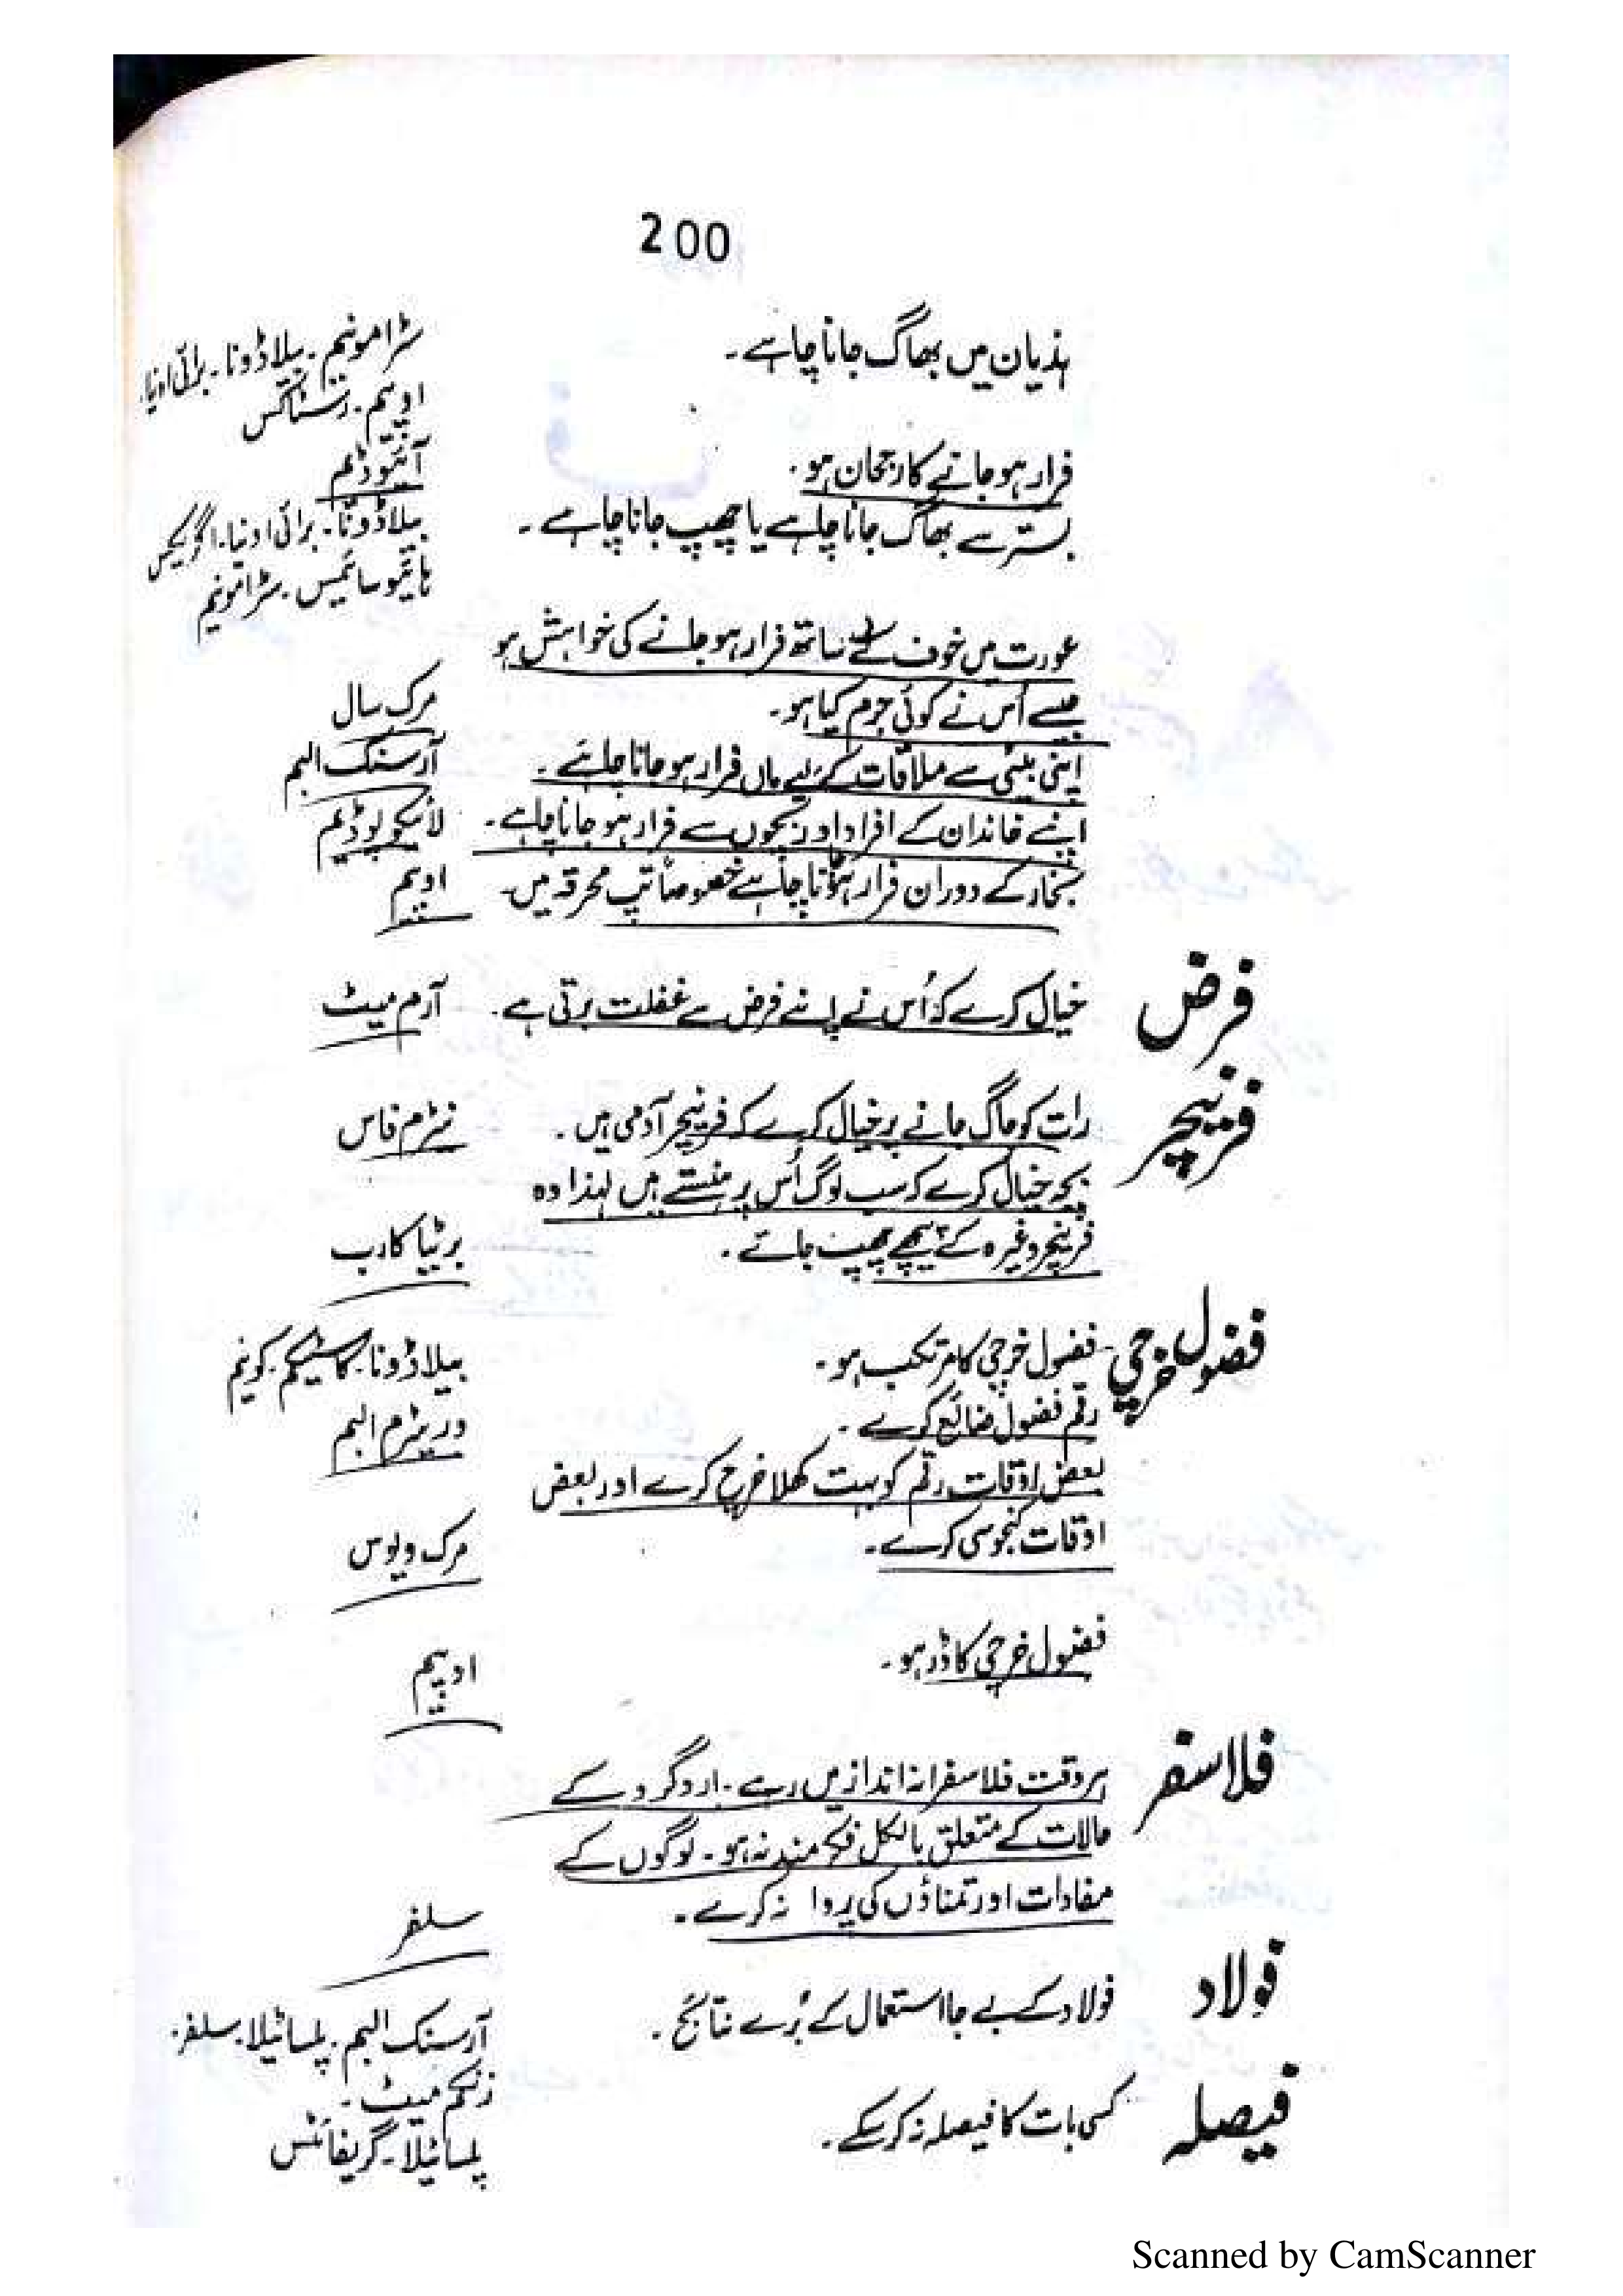 200
ہذیان میں بھاگ جانا چاہے۔
سٹرامونیم۔ بیلاڈونا۔ برائی اونیا۔
اوپیم۔ رسٹاکس
فرار ہو جانے کا رجحان ہو۔
بستر سے بھاگ جانا چاہے یا چھپ جانا چاہے۔
بیلاڈونا۔ برائی اونیا۔
ہائیوسائمس۔ سٹرامونیم
عورت میں خوف کے ساتھ فرار ہو جانے کی خواہش ہو
جیسے اُس نے کوئی جرم کیا ہو۔
مرک سال
اپنی بیٹی سے ملاقات کے لیے ماں فرار ہو جانا چاہے۔
آرسنک البم
اپنے خاندان کے افراد اور بچوں سے فرار ہو جانا چاہے۔
لائیکوپوڈیم
بخار کے دوران فرار ہونا چاہے خصوصاً تپ محرقہ میں۔
اوپیم
فرض
خیال کرے کہ اُس نے اپنے فرض سے غفلت برتی ہے۔
آرم میٹ
فرنیچر
رات کو جاگ جانے پر خیال کرے کہ فرنیچر آدمی ہیں۔
نیٹرم فاس
بچہ خیال کرے کہ سب لوگ اُس پر ہنستے ہیں لہذا وہ
فرنیچر وغیرہ کے پیچھے چھپ جائے۔
برٹیا کارب
فضول خرچی
فضول خرچی کا مرتکب ہو۔
بیلاڈونا۔ کاسٹیکم۔ کونیم
رقم فضول ضائع کرے۔
وریٹرم البم
بعض اوقات رقم کو بہت کھلا خرچ کرے اور بعض
اوقات کنجوسی کرے۔
مرک ویوس
فضول خرچی کا ڈر ہو۔
اوپیم
فلاسفر
ہر وقت فلاسفرانہ انداز میں رہے۔ اردگرد کے
حالات کے متعلق بالکل فکر مند نہ ہو۔ لوگوں کے
مفادات اور تمناؤں کی پروا نہ کرے۔
سلفر
فولاد
فولاد کے بے جا استعمال کے بُرے نتائج۔
آرسنک البم۔ پلساٹیلا۔ سلفر۔
زنکم میٹ۔
فیصلہ
کسی بات کا فیصلہ نہ کر سکے۔
پلساٹیلا۔ گریفائٹس
Scanned by CamScanner